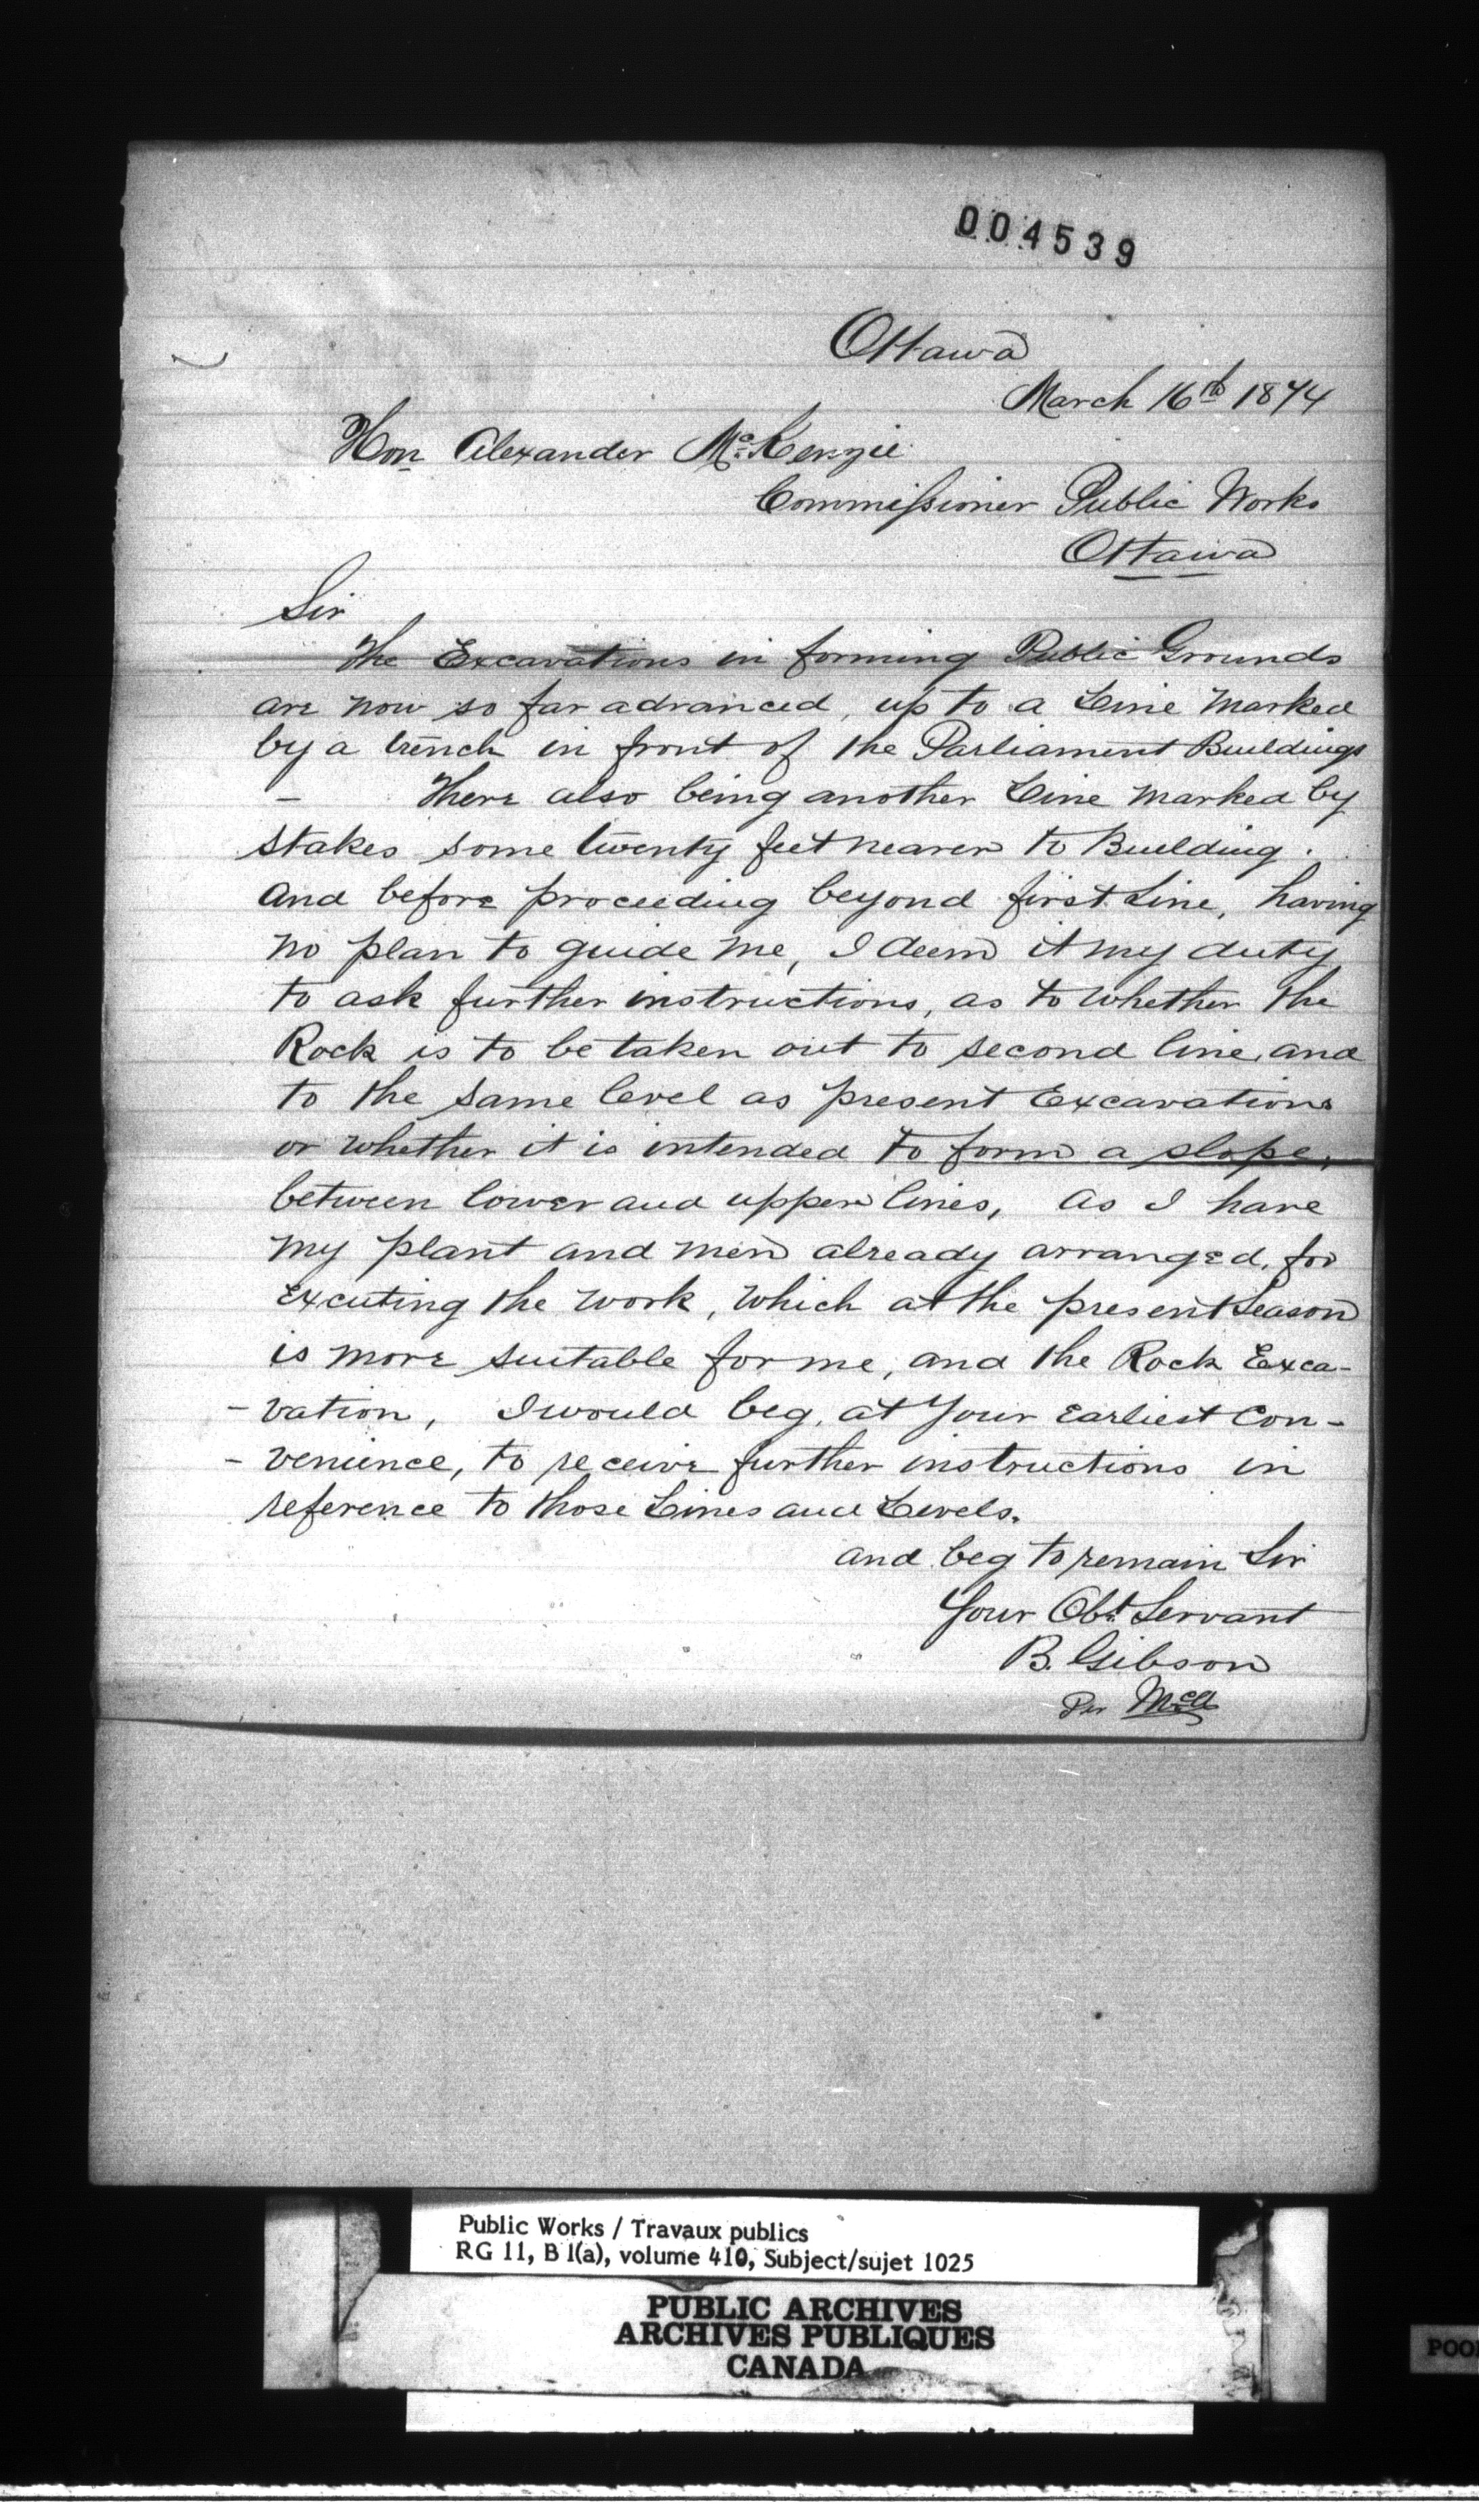 004539
Ottawa
March 16th 1874
Hon Alexander McKenzie
Commissioner Public Works
Ottawa
Sir
The Excavations in forming Public Grounds
are now so far advanced, up to a Line marked
by a trench in front of the Parliament Buildings
- There also being another Line marked by
stakes some twenty feet nearer to Building.
and before proceeding beyond first Line, having
no plan to guide me, I deem it my duty
to ask further instructions, as to whether the
Rock is to be taken out to second line, and
to the same level as present Excavations
or whether it is intended to form a slope,
between lower and upper lines, as I have
my plant and men already arranged, for
Excuting the work, which at the present Season
is more suitable for me, and the Rock Exca-
-vation, I would beg, at your Earliest Con-
-venience, to receive further instructions in
reference to those Lines and Levels.
and beg to remain Sir
Your Obt Servant
B. Gibson
Per
Public Works / Travaux publics
RG 11, B 1(a), volume 410, Subject/sujet 1025
PUBLIC ARCHIVES
ARCHIVES PUBLIQUES
CANADA